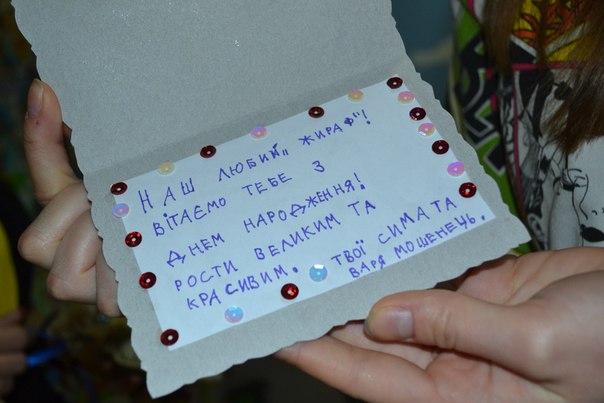 НАШ ЛЮБИЙ „ЖИРАФ"!
ВІТАЄМО ТЕБЕ З
ДНЕМ НАРОДЖЕННЯ!
РОСТИ ВЕЛИКИМ ТА
КРАСИВИМ. ТВОЇ СИМА ТА
ВАРЯ МОШЕНЕЦЬ.